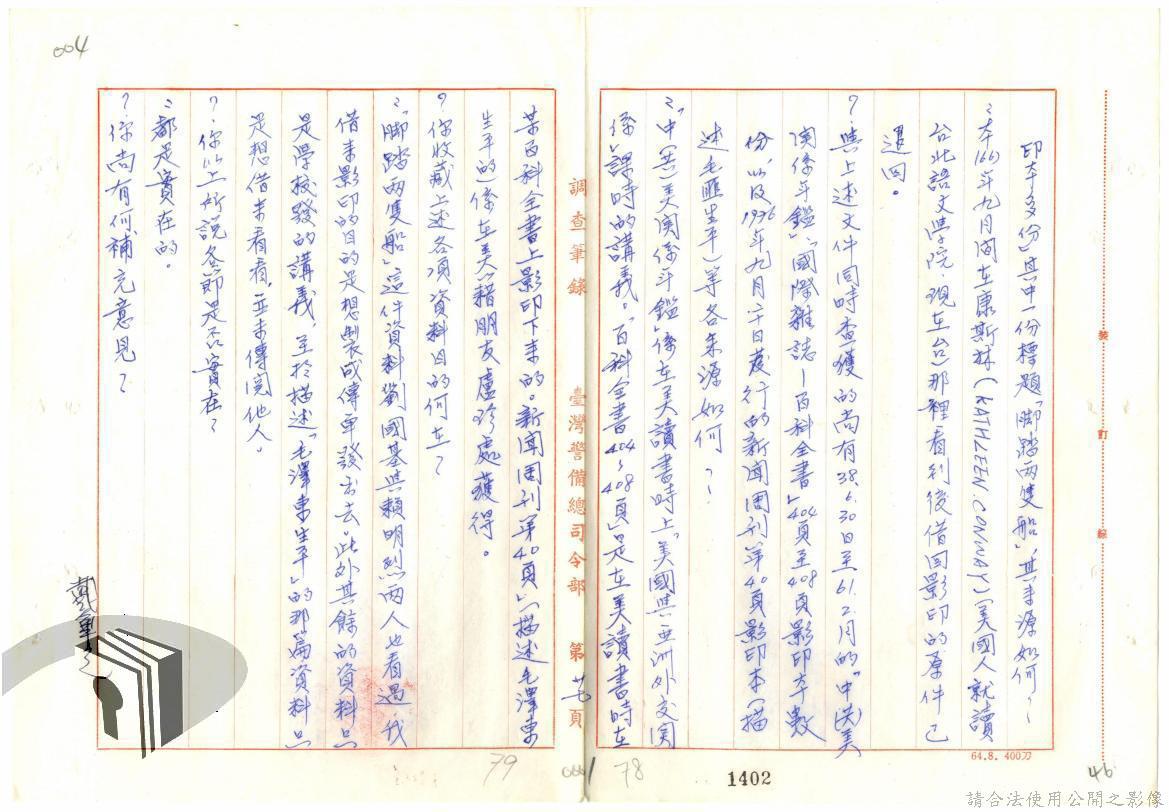 004
印本多份)其中一份標題「脚踏兩隻船」其來源如何?
:本(66)年九月間在康斯林(KATHLEEN.CONWAY)(美國人就讀
台北語文學院.現在台)那裡看到後借回影印的原件已
退回。
?與上述文件同時查獲的尚有38.6.30日至61.2.月的「中(共)美
関係年鑑」「國際雜誌—百科全書」404頁至408頁影印本數
份,以及1976年九月二十日發行的新聞周刊第40頁影印本(描
述毛匪生平)等各來源如何?
:「中(共)美関係年鑑」係在美讀書時上「美國與亞洲外交関
係」課時的講義。「百科全書404~408頁」是在美讀書時在
某百科全書上影印下來的。新聞周刊第40頁(描述毛澤東
生平的)係在美籍朋友盧珍處獲得。
?你收藏上述各項資料目的何在?
:「脚踏兩隻船」這件資料劉國基與賴明烈兩人也看過,我
借來影印的目的是想製成傳單發出去。此外其餘的資料只
是學校發的講義,至於描述「毛澤東生平」的那篇資料只
是想借來看看,並未傳閱他人。
?你以上所說各節是否實在?
:都是實在的。
?你尚有何補充意見?
調查筆錄
臺灣警備總司令部
第 頁
裝
訂
線
64.8. 400刀
79
78
1402
46
請合法使用公開之影像